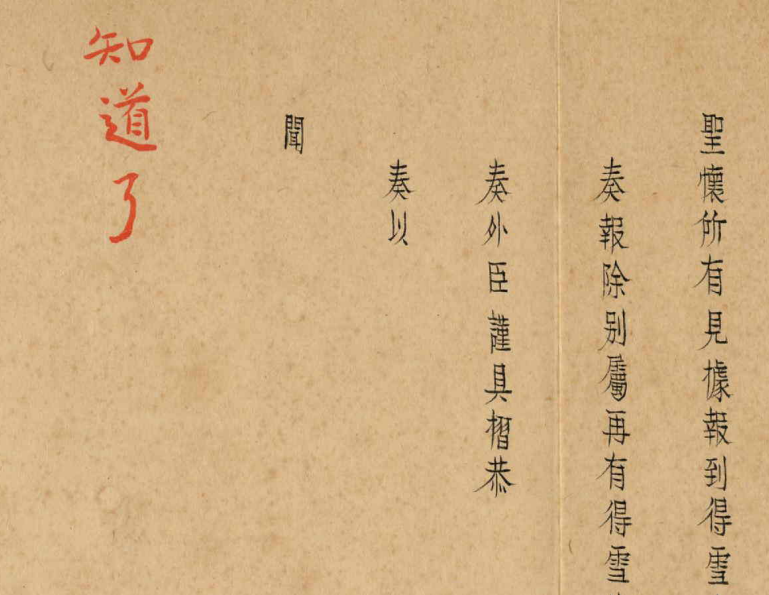 聖懷所有見據報到得雪
奏報除别屬再有得雪
奏外臣謹具摺恭
奏以
聞
知道了